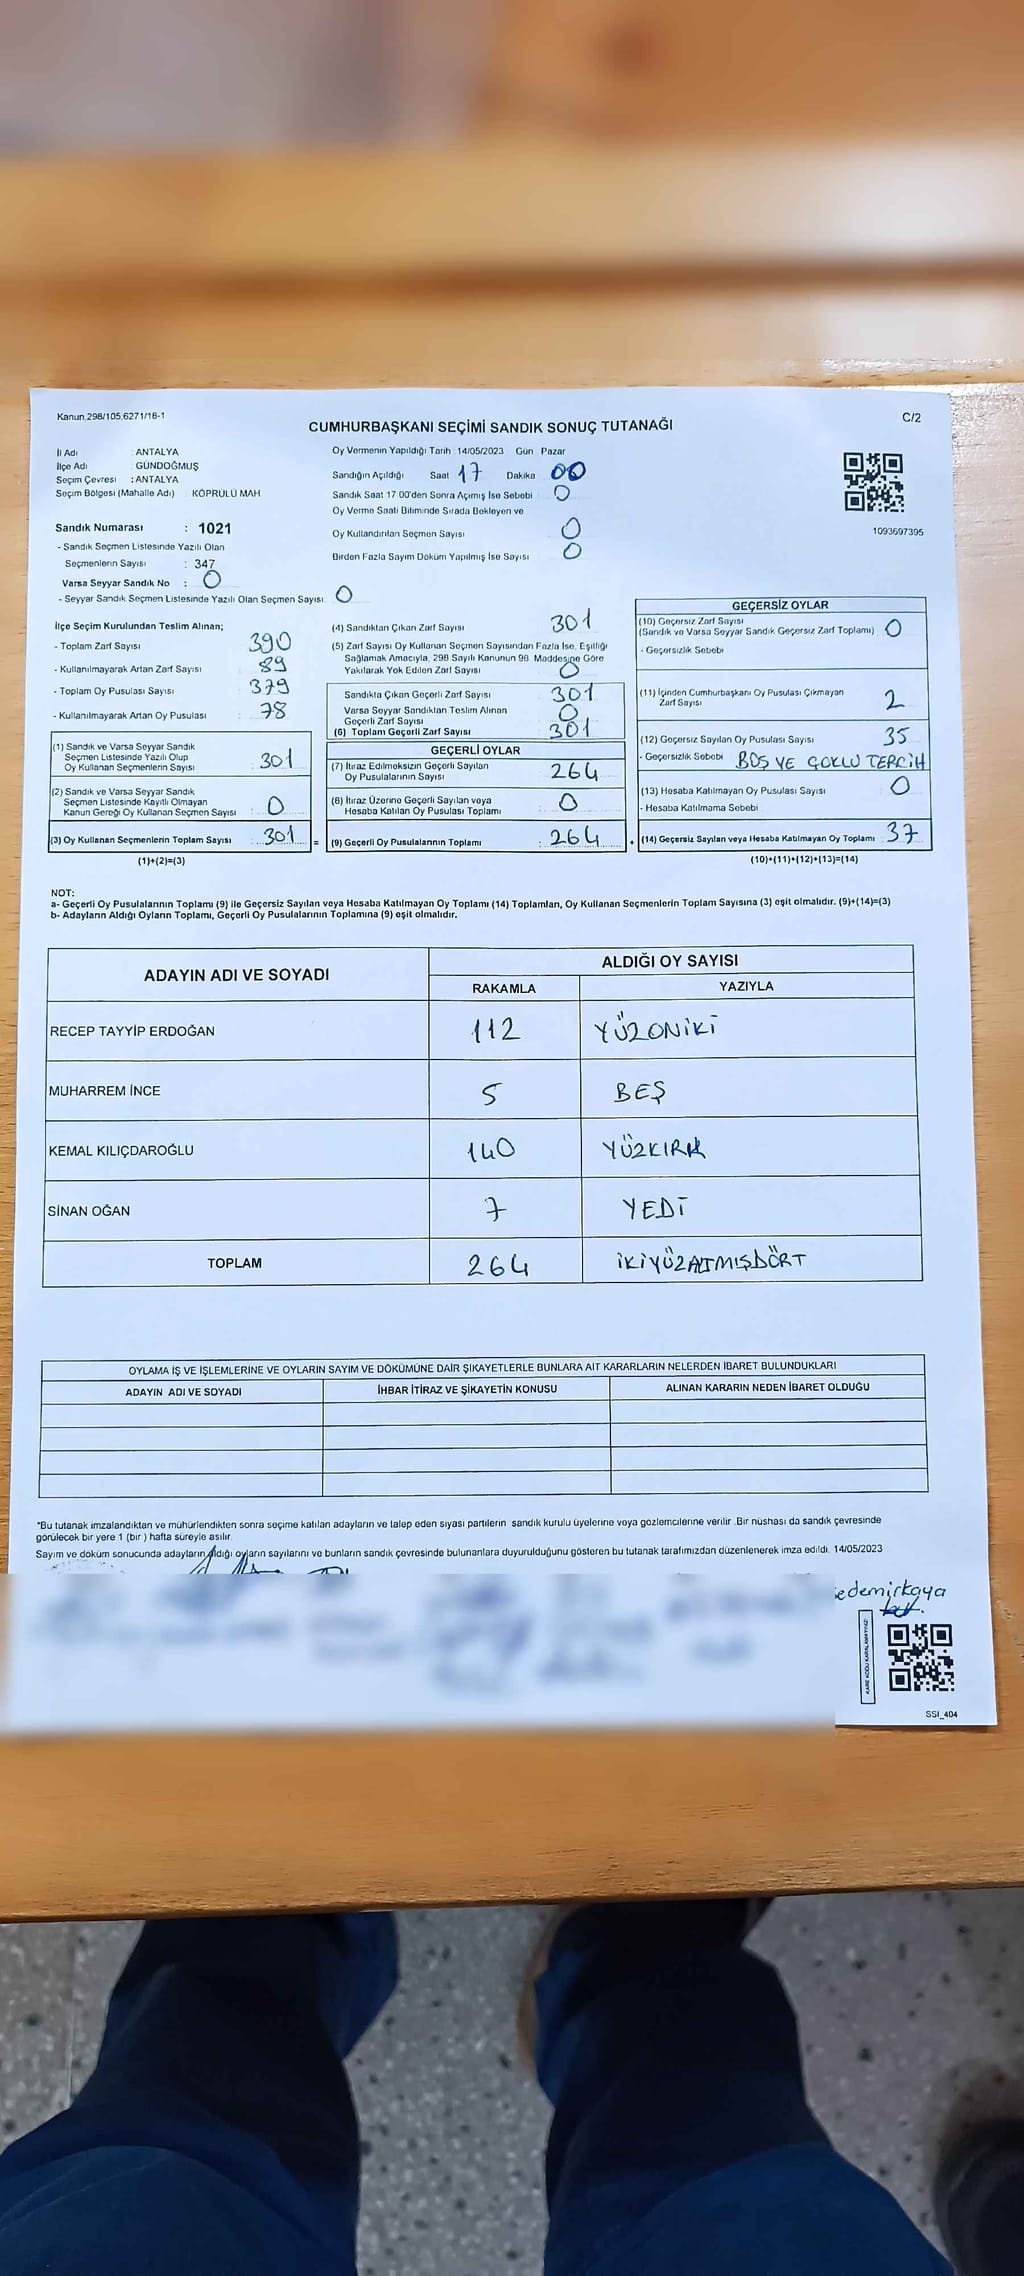 Kanun 298/105,6271/18-1
C/2
CUMHURBAŞKANI SEÇİMİ SANDIK SONUÇ TUTANAĞI
İl Adı : ANTALYA
İlçe Adı : GÜNDOĞMUŞ
Seçim Çevresi : ANTALYA
Seçim Bölgesi (Mahalle Adı) KÖPRÜLÜ MAH
Sandık Numarası : 1021
- Sandık Seçmen Listesinde Yazılı Olan
Seçmenlerin Sayısı : 347
Varsa Seyyar Sandık No : 0
- Seyyar Sandık Seçmen Listesinde Yazılı Olan Seçmen Sayısı. 0
Oy Vermenin Yapıldığı Tarih 14/05/2023 Gün Pazar
Sandığın Açıldığı Saat 17 Dakika 00
Sandık Saat 17 00'den Sonra Açımış İse Sebebi 0
Oy Verme Saati Bitiminde Sırada Bekleyen ve
Oy Kullandırılan Seçmen Sayısı 0
Birden Fazla Sayım Döküm Yapılmış İse Sayısı 0
1093697395
İlçe Seçim Kurulundan Teslim Alınan;
- Toplam Zarf Sayısı 390
- Kullanılmayarak Artan Zarf Sayısı 89
- Toplam Oy Pusulası Sayısı 379
- Kullanılmayarak Artan Oy Pusulası 78
(1) Sandık ve Varsa Seyyar Sandık
Seçmen Listesinde Yazılı Olup
Oy Kullanan Seçmenlerin Sayısı 301
(2) Sandık ve Varsa Seyyar Sandık
Seçmen Listesinde Kayıtlı Olmayan
Kanun Gereği Oy Kullanan Seçmen Sayısı : 0
(3) Oy Kullanan Seçmenlerin Toplam Sayısı 301
(1)+(2)=(3)
(4) Sandıktan Çıkan Zarf Sayısı 301
(5) Zarf Sayısı Oy Kullanan Seçmen Sayısından Fazla İse, Eşitliği
Sağlamak Amacıyla, 298 Sayılı Kanunun 98 Maddesine Göre
Yakılarak Yok Edilen Zarf Sayısı 0
Sandıkta Çıkan Geçerli Zarf Sayısı 301
Varsa Seyyar Sandıktan Teslim Alınan
Geçerli Zarf Sayısı 0
(6) Toplam Geçerli Zarf Sayısı 301
GEÇERLİ OYLAR
(7) İtiraz Edilmeksizin Geçerli Sayılan
Oy Pusulalarının Sayısı 264
(8) İtiraz Üzerine Geçerli Sayılan veya
Hesaba Katılan Oy Pusulası Toplamı 0
= (9) Geçerli Oy Pusulalarının Toplamı : 264
GEÇERSİZ OYLAR
(10) Geçersiz Zarf Sayısı
(Sandık ve Varsa Seyyar Sandık Geçersiz Zarf Toplamı) 0
- Geçersizlik Sebebi
(11) İçinden Cumhurbaşkanı Oy Pusulası Çıkmayan
Zarf Sayısı 2
(12) Geçersiz Sayılan Oy Pusulası Sayısı 35
- Geçersizlik Sebebi BOŞ VE ÇOKLU TERCİH
(13) Hesaba Katılmayan Oy Pusulası Sayısı 0
- Hesaba Katılmama Sebebi
+ (14) Geçersiz Sayılan veya Hesaba Katılmayan Oy Toplamı 37
(10)+(11)+(12)+(13)=(14)
NOT:
a- Geçerli Oy Pusulalarının Toplamı (9) ile Geçersiz Sayılan veya Hesaba Katılmayan Oy Toplamı (14) Toplamları, Oy Kullanan Seçmenlerin Toplam Sayısına (3) eşit olmalıdır. (9)+(14)=(3)
b- Adayların Aldığı Oyların Toplamı, Geçerli Oy Pusulalarının Toplamına (9) eşit olmalıdır.
ADAYIN ADI VE SOYADI
ALDIĞI OY SAYISI
RAKAMLA YAZIYLA
RECEP TAYYİP ERDOĞAN 112 YÜZONİKİ
MUHARREM İNCE 5 BEŞ
KEMAL KILIÇDAROĞLU 140 YÜZKIRK
SİNAN OĞAN 7 YEDİ
TOPLAM 264 İKİYÜZATMIŞDÖRT
OYLAMA İŞ VE İŞLEMLERİNE VE OYLARIN SAYIM VE DÖKÜMÜNE DAİR ŞİKAYETLERLE BUNLARA AİT KARARLARIN NELERDEN İBARET BULUNDUKLARI
ADAYIN ADI VE SOYADI İHBAR İTİRAZ VE ŞİKAYETİN KONUSU ALINAN KARARIN NEDEN İBARET OLDUĞU
*Bu tutanak imzalandıktan ve mühürlendikten sonra seçime katılan adayların ve talep eden siyasi partilerin sandık kurulu üyelerine veya gözlemcilerine verilir .Bir nüshası da sandık çevresinde
görülecek bir yere 1 (bir ) hafta süreyle asılır.
Sayım ve döküm sonucunda adayların aldığı oyların sayılarını ve bunların sandık çevresinde bulunanlara duyurulduğunu gösteren bu tutanak tarafımızdan düzenlenerek imza edildi. 14/05/2023
edemirkaya
KARE KODU KARALAMAYINIZ
SSI_404